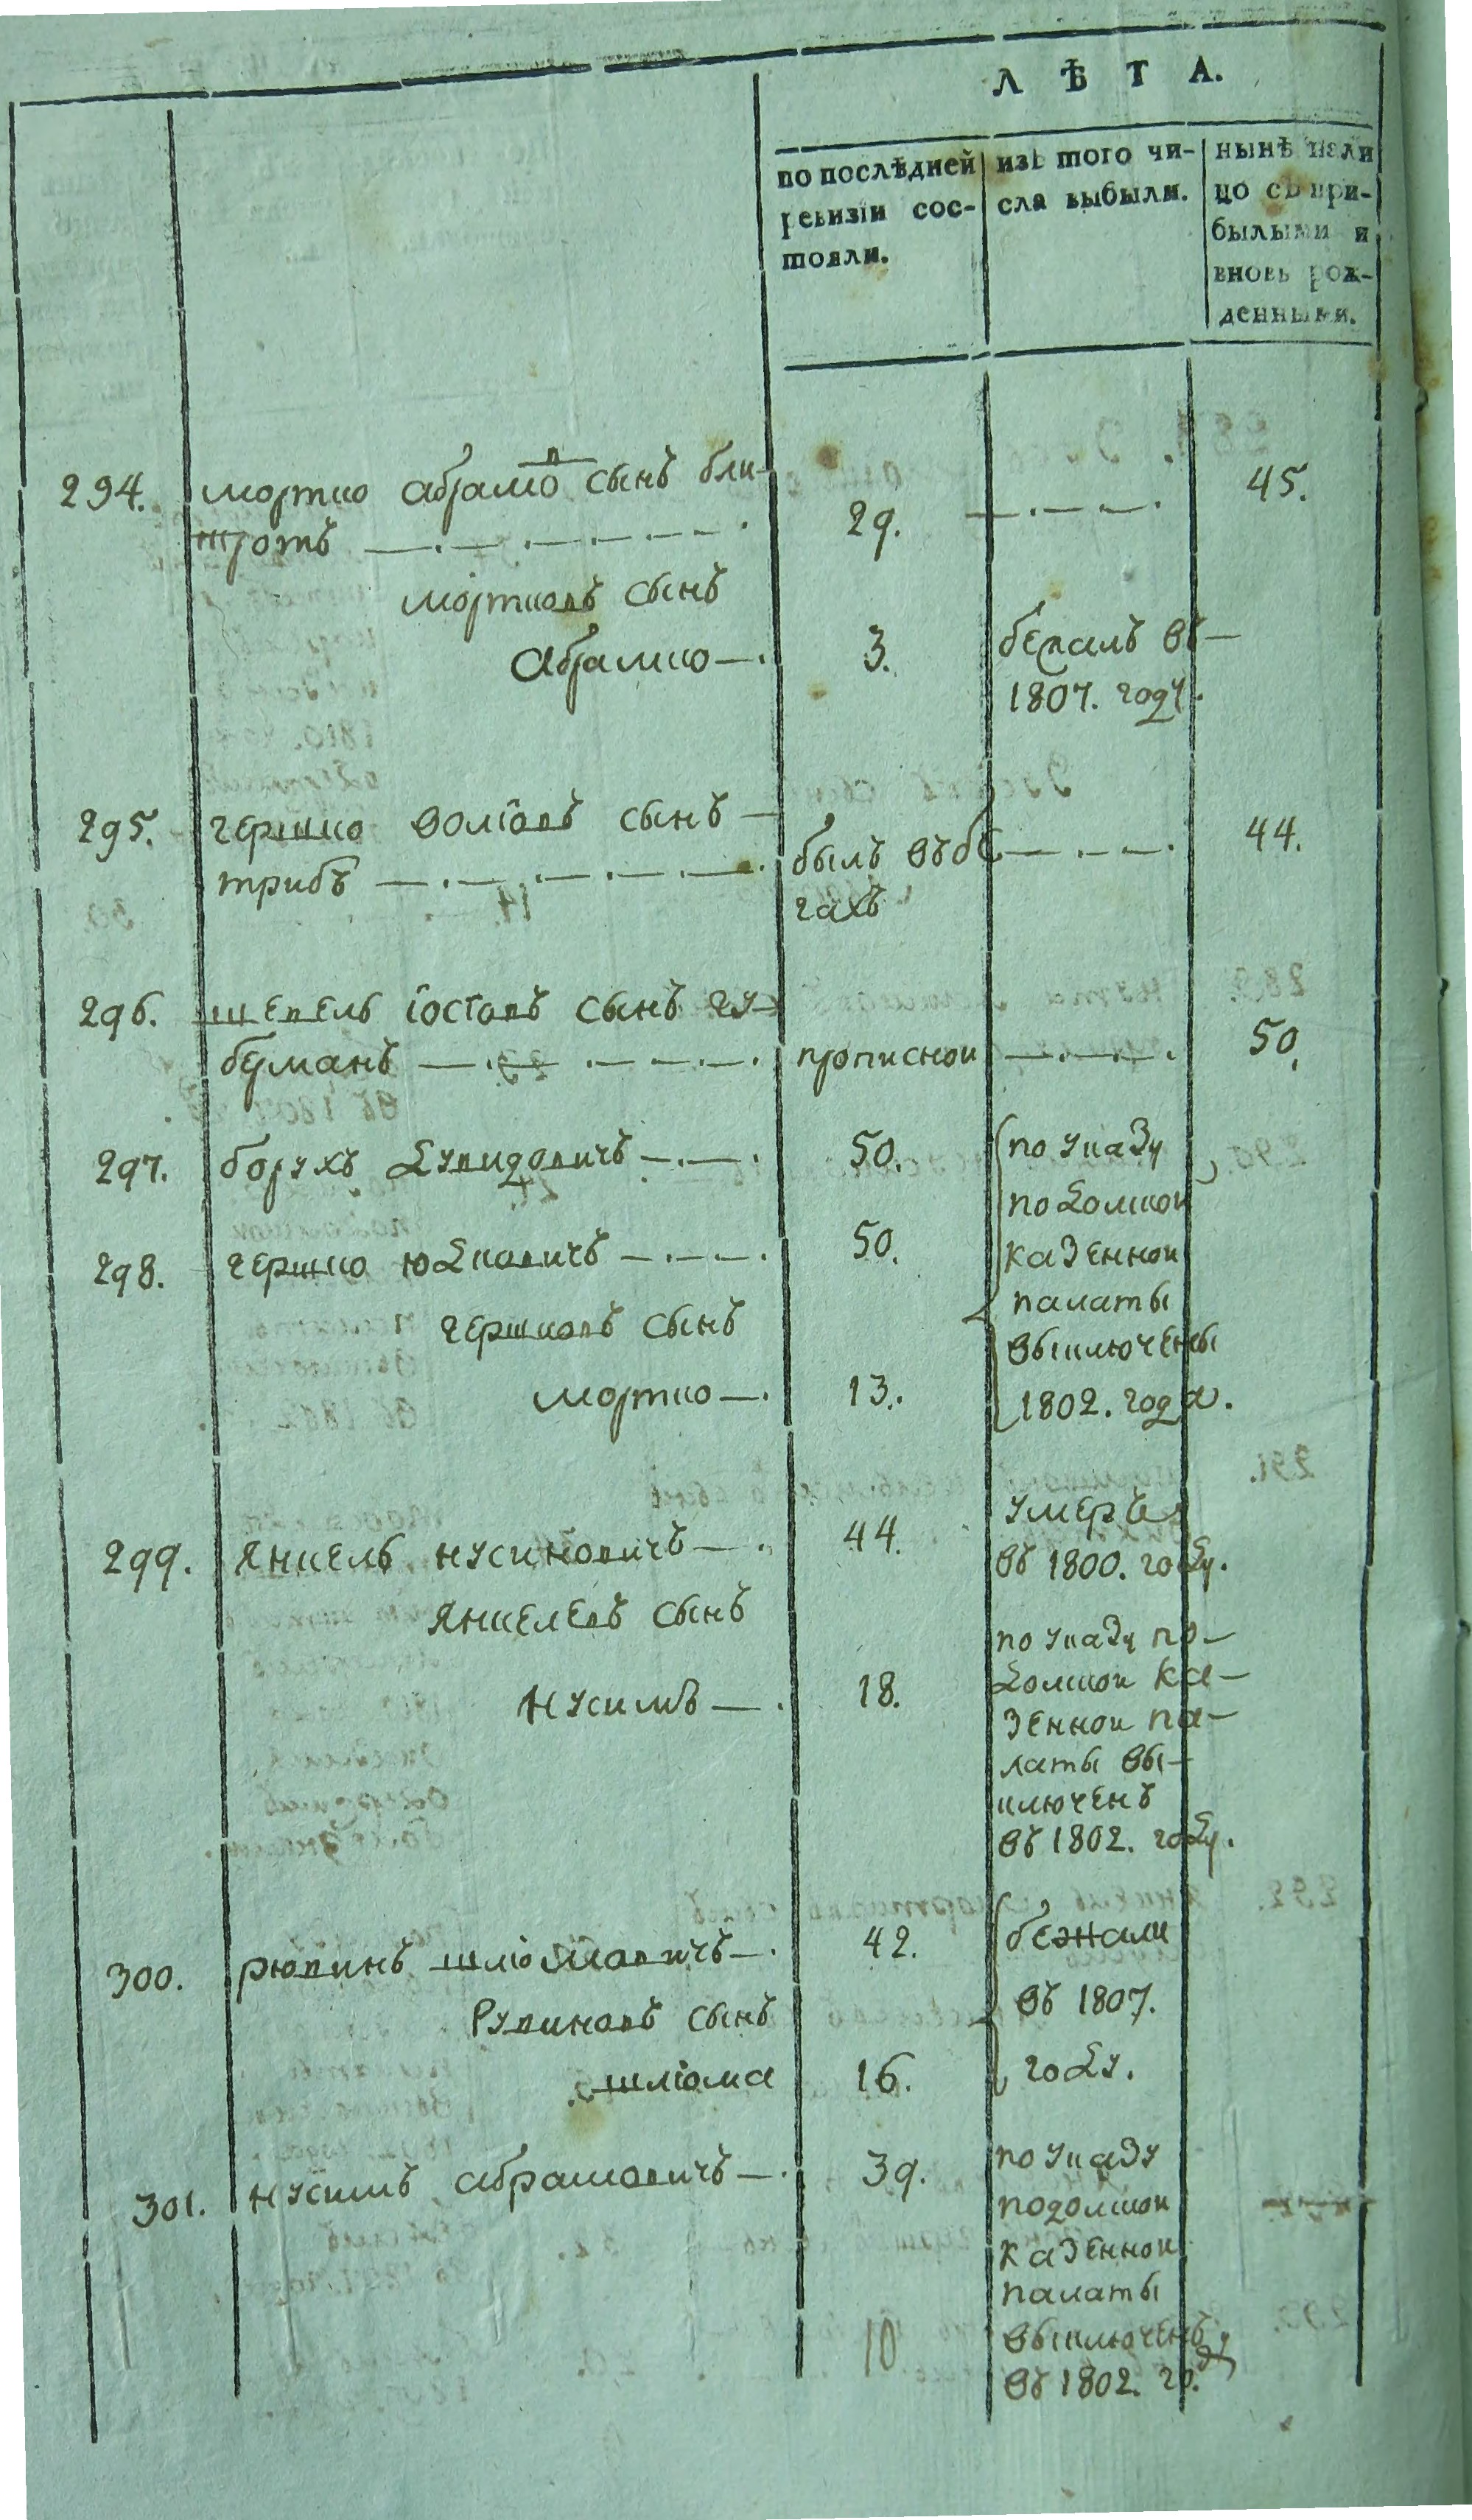 ЛѢТА.
по послѣдней
ревизіи сос-
тояли.
изъ того чи-
сла выбыли.
нынѣ нали
цо съ при-
былыми и
вновь рож-
денными.
294. мортко абрамовъ сынъ бли-
29. 45.
мортковъ сынъ
абрамко 3. бежалъ въ
1807. году.
295. гершко волковъ сынъ
трибъ былъ въ бѣ 44.
гахъ
296. шепель іосіовъ сынъ гу
берманъ прописной 50.
297. борухъ Дувидовичъ 50. по указу
подолской
298. гершко юдковичъ 50. казенной
палаты
гершковъ сынъ
выключены
мортко 13. 1802. года.
299. янкель нусимовичъ 44. умеръ
въ 1800. году.
янкелевъ сынъ
нусимъ 18. по указу по-
долской ка-
зенной па-
латы вы-
ключенъ
въ 1802. году.
300. рювинъ шліомовичъ 42. бежали
въ 1807.
Рувиновъ сынъ
году.
шліома 16.
301. нусимъ абрамовичъ 39. по указу
подолской
казенной
палаты
выключенъ
въ 1802. го.
10